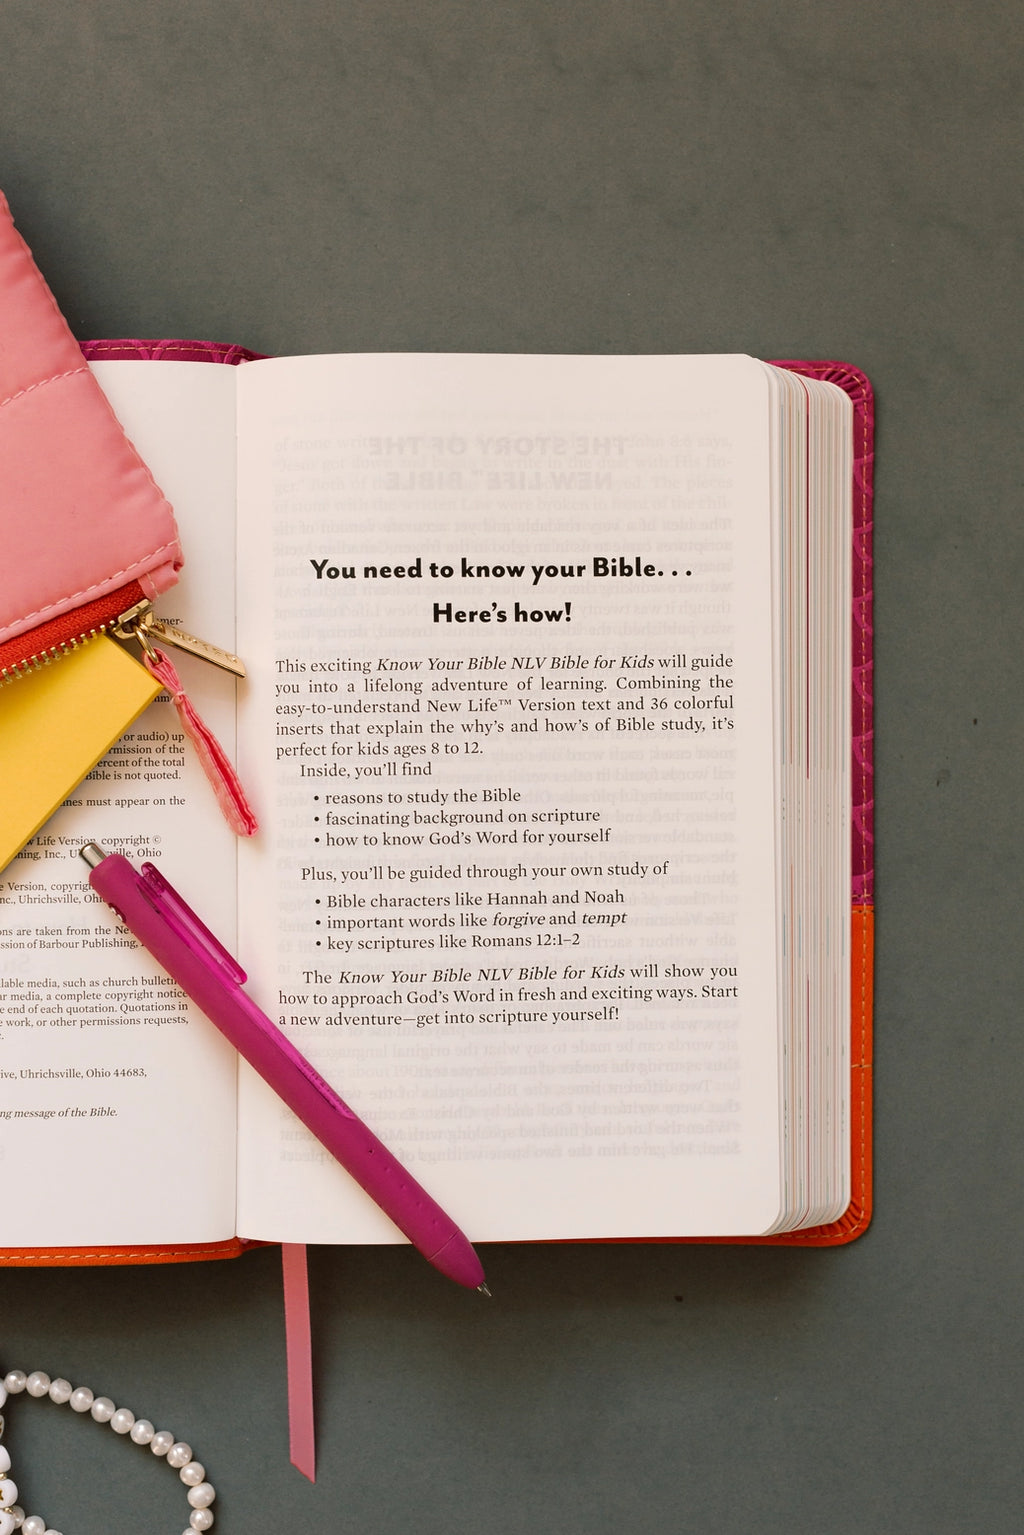 mer-
, or audio) up
rmission of the
ercent of the total
Bible is not quoted.
nes must appear on the
w Life Version, copyright ©
hing, Inc., Uhrichsville, Ohio
e Version, copyrigh
nc., Uhrichsville, Oh
ons are taken from the Ne
ssion of Barbour Publishing,
lable media, such as church bulletin
ur media, a complete copyright notice
e end of each quotation. Quotations in
e work, or other permissions requests,
ive, Uhrichsville, Ohio 44683,
ng message of the Bible.
You need to know your Bible. . .
Here's how!
This exciting Know Your Bible NLV Bible for Kids will guide
you into a lifelong adventure of learning. Combining the
easy-to-understand New Life™ Version text and 36 colorful
inserts that explain the why's and how's of Bible study, it's
perfect for kids ages 8 to 12.
Inside, you'll find
• reasons to study the Bible
• fascinating background on scripture
• how to know God's Word for yourself
Plus, you'll be guided through your own study of
• Bible characters like Hannah and Noah
• important words like forgive and tempt
• key scriptures like Romans 12:1–2
The Know Your Bible NLV Bible for Kids will show you
how to approach God's Word in fresh and exciting ways. Start
a new adventure—get into scripture yourself!